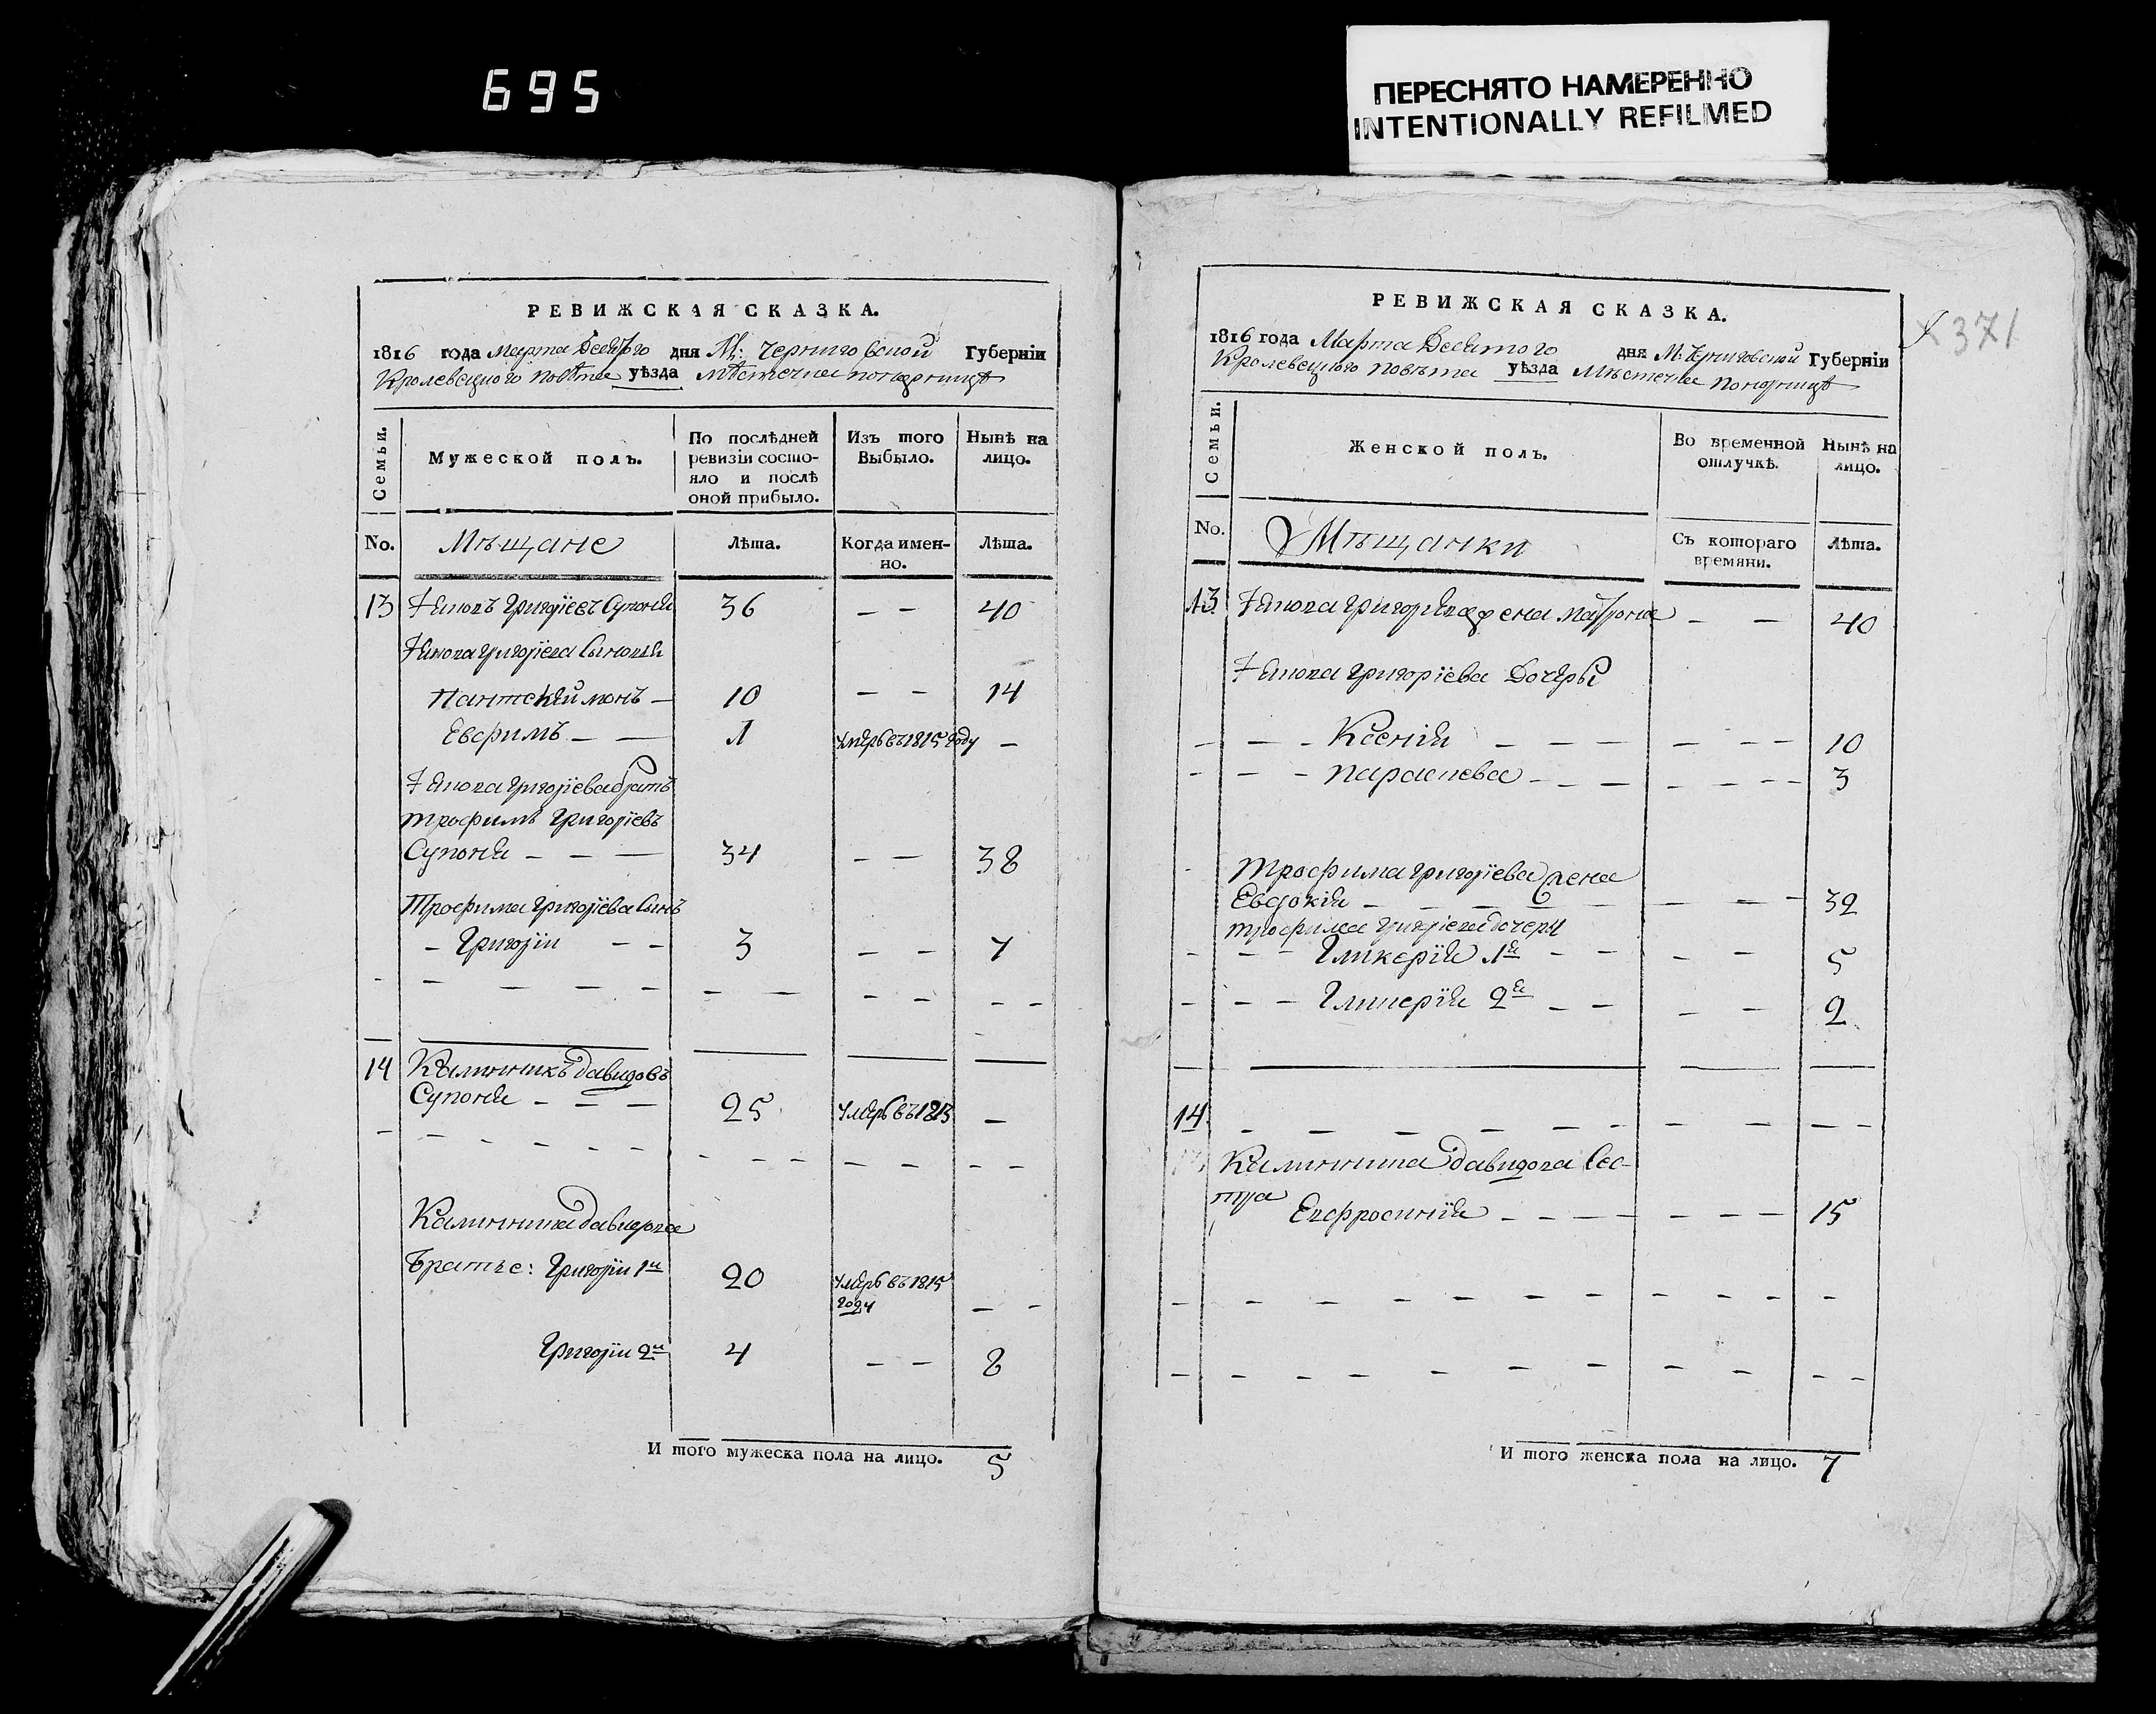 695
ПЕРЕСНЯТО НАМЕРЕННО
INTENTIONALLY REFILMED
РЕВИЖСКАЯ СКАЗКА.
1816 года Марта Десятого дня М: Черниговской Губерніи
Кролевецкого повѣта уѣзда мѣстечка понорницѣ
Семьи.
Мужеской полъ.
По послѣдней
ревизіи состо-
яло и послѣ
оной прибыло.
Изъ того
Выбыло.
Нынѣ на
лицо.
No.
Мѣщане
Лѣта.
Когда имен-
но.
Лѣта.
13 Григоріевъ Супоня 36 — — 40
Григоріева Сыновья
Пантелеймонъ — 10 — — 14
Евфимъ — — 1 умеръ въ 1815 году —
Григоріева братъ
трофимъ Григоріевъ
Супоня — — — 34 — — 38
Трофима Григоріева Сынъ
— Григоріи — — 3 — — 7
14 Калинникъ давидовъ
Супоня — — — 25 умеръ въ 1813 —
Калинника давидова
Братья: Григоріи 1й 20 умеръ въ 1815
году — —
Григоріи 2й 4 — — 8
И того мужеска пола на лицо. 5
371
РЕВИЖСКАЯ СКАЗКА.
1816 года Марта Десятого дня М. Черниговской Губерніи
Кролевецкого повѣта уѣзда Мѣстечка понорницѣ
Семьи.
Женской полъ.
Во временной
отлучкѣ.
Нынѣ на
лицо.
No.
Мѣщанки
Съ котораго
времяни.
Лѣта.
13 Григоріева жена — — 40
Григоріева Дочеры
— — — Ксенія — — — — — — 10
— — — параскева — — — — — — — 3
Трофима григоріева жена
Евдокія — — — — — — — — 32
трофима григоріева дочери
— — — Гликерія 1я — — — — 5
— — — Гликерія 2я — — — — 2
14. — — — — — — — — — —
Калинника давидова Сес-
тра
Евфросинія — — — — — — — 15
И того женска пола на лицо. 7